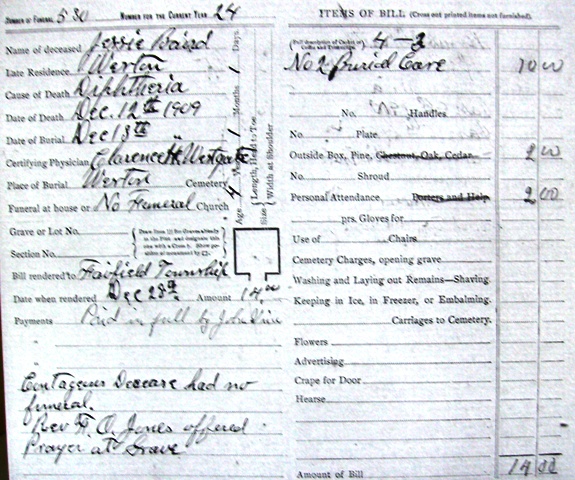 NUMBER OF FUNERAL 530 NUMBER FOR THE CURRENT YEAR 24
Name of deceased Jessie Baird
Late Residence Weston
Cause of Death Diphtheria
Date of Death Dec. 12th 1909
Date of Burial Dec 13th "
Certifying Physician Clarence H. Westgate
Place of Burial Weston Cemetery
Funeral at house or No Funeral Church
Grave or Lot No.
Section No.
Bill rendered to Fairfield Township
Date when rendered Dec 28th Amount 14.00
Payments Paid in full by John
"
"
Contageus Disease had no
funeral.
Rev H. O. Jones offered
Prayer at Grave
Age, 4 Months 1 Days 1
Length, Head to Toe,
Size Width at Shoulder
ITEMS OF BILL (Cross out printed items not furnished).
(Full description of Casket or Coffin and Trimmings) 4-3
No 2 Burial Case 10 00
No. Handles
No. Plate
Outside Box, Pine, Chestnut, Oak, Cedar 2 00
No. Shroud
Personal Attendance, Porters and Help 2 00
prs. Gloves for
Use of Chairs
Cemetery Charges, opening grave
Washing and Laying out Remains—Shaving.
Keeping in Ice, in Freezer, or Embalming.
Carriages to Cemetery.
Flowers
Advertising
Crape for Door
Hearse
Amount of Bill 14 00